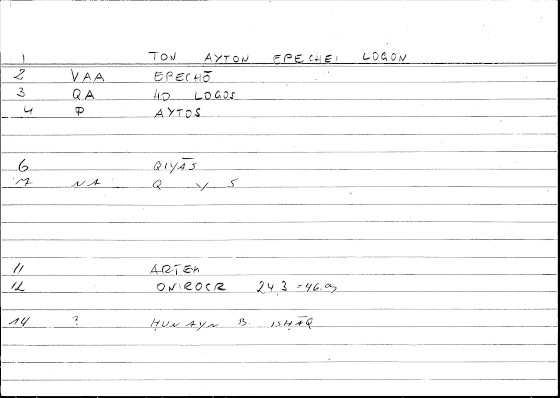 1 TON AYTON EPECHEI LOGON
2 VAA EPECHŌ
3 QA HO LOGOS
4 P AYTOS
6 QIYĀS
7 NA Q Y S
11 ARTEM
12 ONIROCR 24,3
14 ? ḤUNAYN B ISḤĀQ